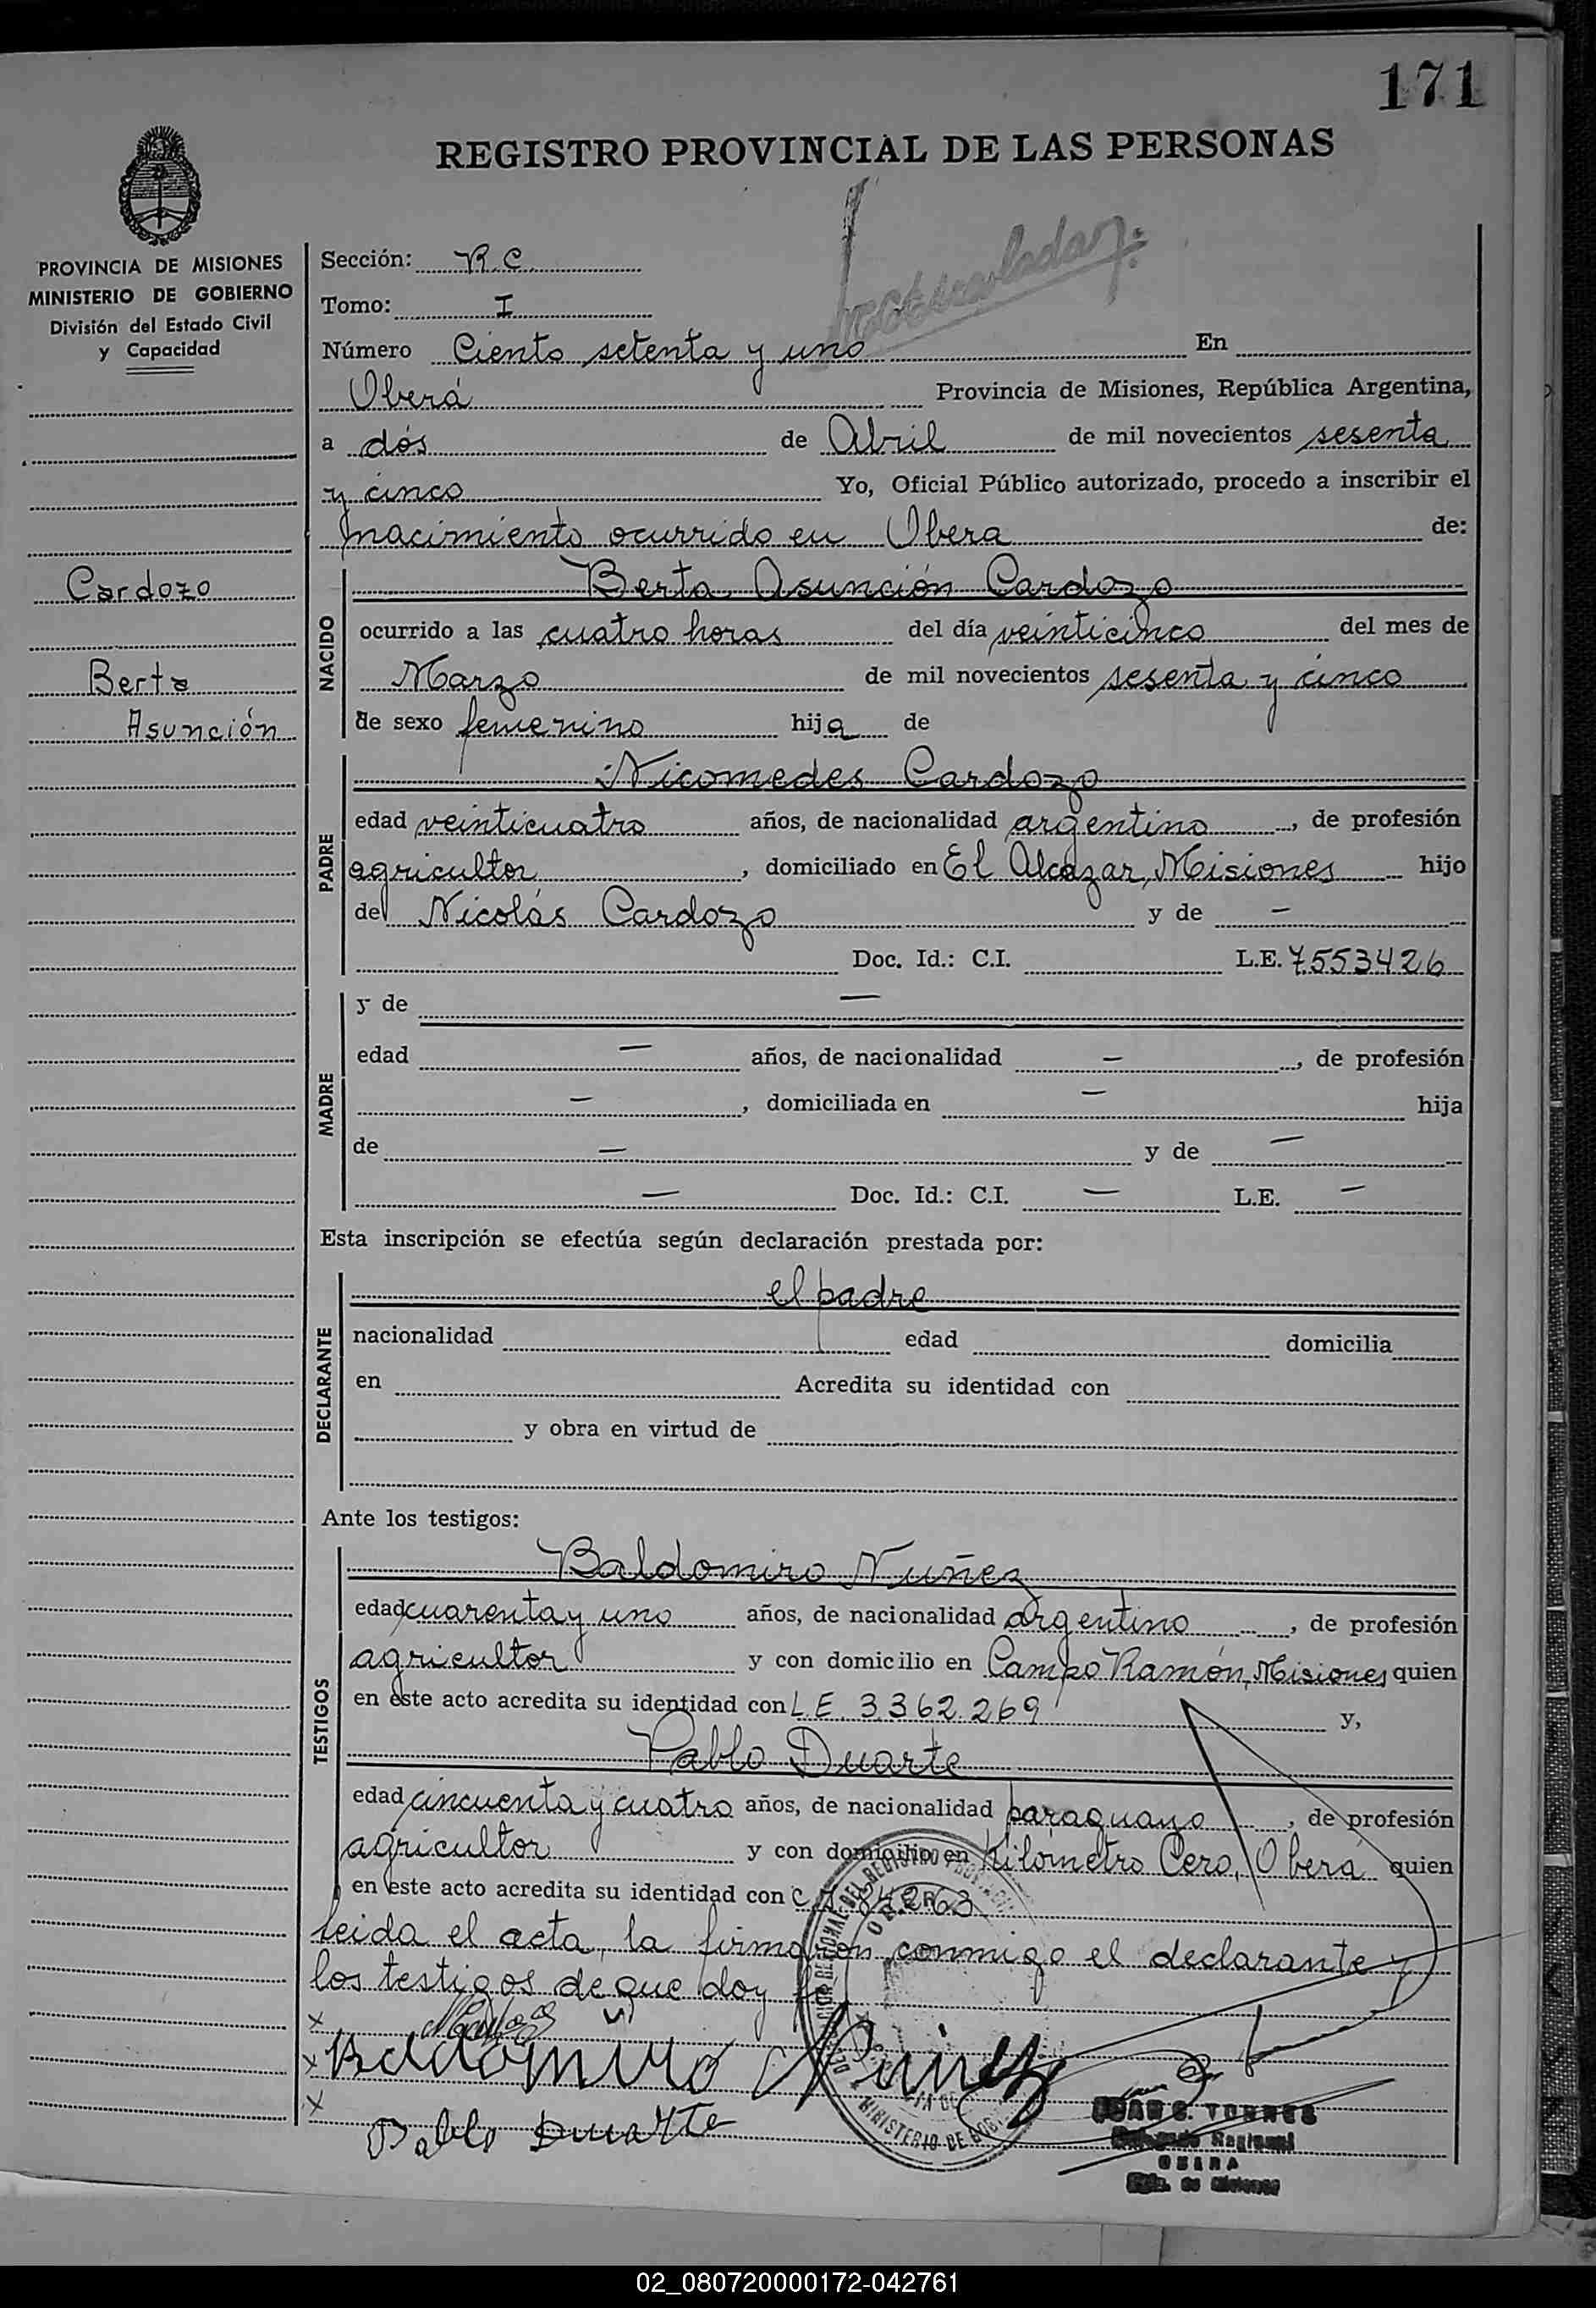 171
REGISTRO PROVINCIAL DE LAS PERSONAS
PROVINCIA DE MISIONES
MINISTERIO DE GOBIERNO
División del Estado Civil
y Capacidad
Cardozo
Berta
Asunción
Sección: R.C.
Tomo: I
Número Ciento setenta y uno En
Oberá Provincia de Misiones, República Argentina,
a dós de Abril de mil novecientos sesenta
y cinco Yo, Oficial Público autorizado, procedo a inscribir el
nacimiento ocurrido en Obera de:
NACIDO
Berta Asunción Cardozo
ocurrido a las cuatro horas del día veinticinco del mes de
Marzo de mil novecientos sesenta y cinco
de sexo femenino hija de
PADRE
Nicomedes Cardozo
edad veinticuatro años, de nacionalidad argentino, de profesión
agricultor, domiciliado en El Alcazar, Misiones hijo
de Nicolás Cardozo y de —
Doc. Id.: C.I. L.E. 7553426
MADRE
y de —
edad — años, de nacionalidad —, de profesión
—, domiciliada en — hija
de — y de —
— Doc. Id.: C.I. — L.E. —
Esta inscripción se efectúa según declaración prestada por:
DECLARANTE
el padre
nacionalidad edad domicilia
en Acredita su identidad con
y obra en virtud de
Ante los testigos:
TESTIGOS
Baldomiro Nuñez
edad cuarenta y uno años, de nacionalidad argentino, de profesión
agricultor y con domicilio en Campo Ramón, Misiones quien
en este acto acredita su identidad con L.E. 3.362.269 y,
Pablo Duarte
edad cincuenta y cuatro años, de nacionalidad paraguayo, de profesión
agricultor y con domicilio en Kilometro Cero, Obera quien
en este acto acredita su identidad con C.I.
leida el acta, la firmaron conmigo el declarante y
los testigos de que doy fe
Baldomiro Nuñez
Pablo Duarte
MINISTERIO DE
JUAN TORRES
Delegado Regional
OBERA
Pcia. de Misiones
02_080720000172-042761